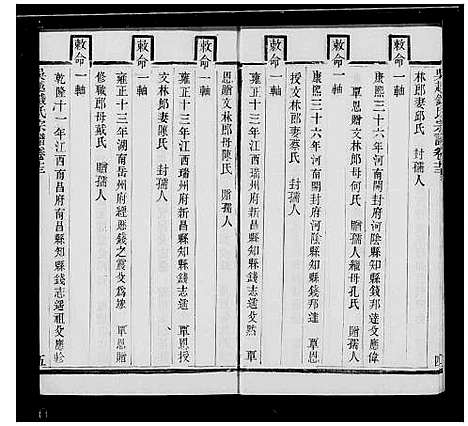 吳越錢氏宗譜卷十三
林郎妻邱氏 封孺人
敕命一軸
康熙三十六年河南開封府河陰縣知縣錢邦達父應偉
覃恩贈文林郎母何氏 贈孺人繼母孔氏
敕命一軸
康熙三十六年河南開封府河陰縣知縣錢邦達 覃恩
授文林郎妻蔡氏 封孺人
敕命一軸
雍正十三年江西瑞州府新昌縣知縣錢志遙父然 覃
四
恩贈文林郎母陳氏 贈孺人
敕命一軸
雍正十三年江西瑞州府新昌縣知縣錢志遙 覃恩授
文林郎妻陳氏 封孺人
敕命一軸
雍正十三年湖南岳州府經歷錢之震父爲 覃恩贈
修職郎母戴氏 贈孺人
敕命一軸
乾隆十一年江西南昌府南昌縣知縣錢志遙祖父應
吳越錢氏宗譜卷十三
五